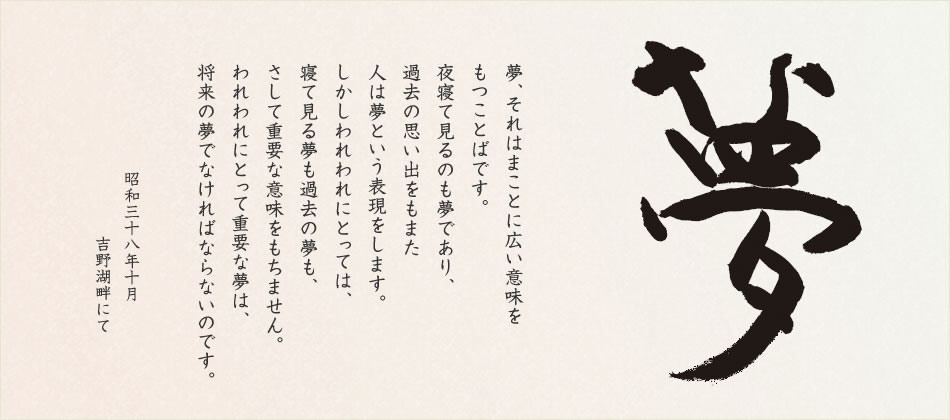 夢
夢、それはまことに広い意味を
もつことばです。
夜寝て見るのも夢であり、
過去の思い出をもまた
人は夢という表現をします。
しかしわれわれにとっては、
寝て見る夢も過去の夢も、
さして重要な意味をもちません。
われわれにとって重要な夢は、
将来の夢でなければならないのです。
昭和三十八年十月
吉野湖畔にて